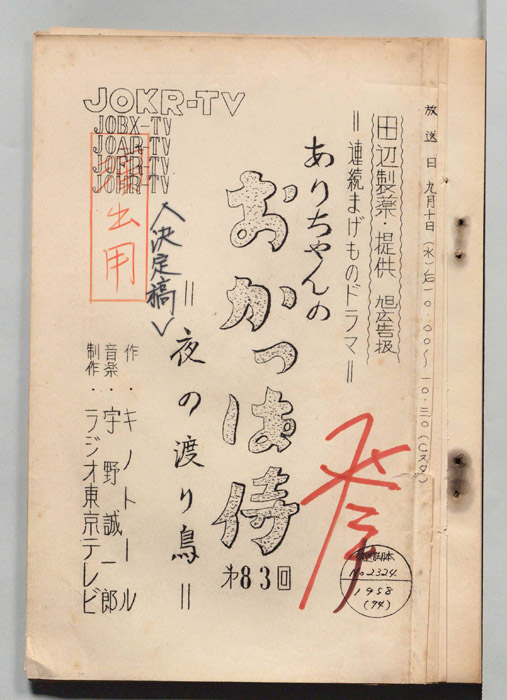 放送日 九月十日(水)后一〇.〇〇〜一〇.三〇(Cスタ)
田辺製薬・提供 旭広告扱
=連続まげものドラマ=
ありちゃんの
おかっぱ侍
第83回
=夜の渡り鳥=
<決定稿>
作・キノトール
音楽・宇野誠一郎
制作・ラジオ東京テレビ
JOKR-TV
JOBX-TV
JOAR-TV
JOER-TV
JOHR-TV
出用
No2324
1958
(74)